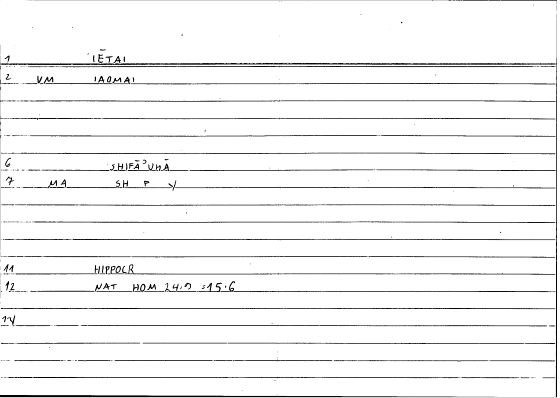 1 IĒTAI
2 VM IAOMAI
6 SHIFĀʾUHĀ
7 MA SH F Y
11 HIPPOCR
12 NAT HOM 24.9 =15.6
14